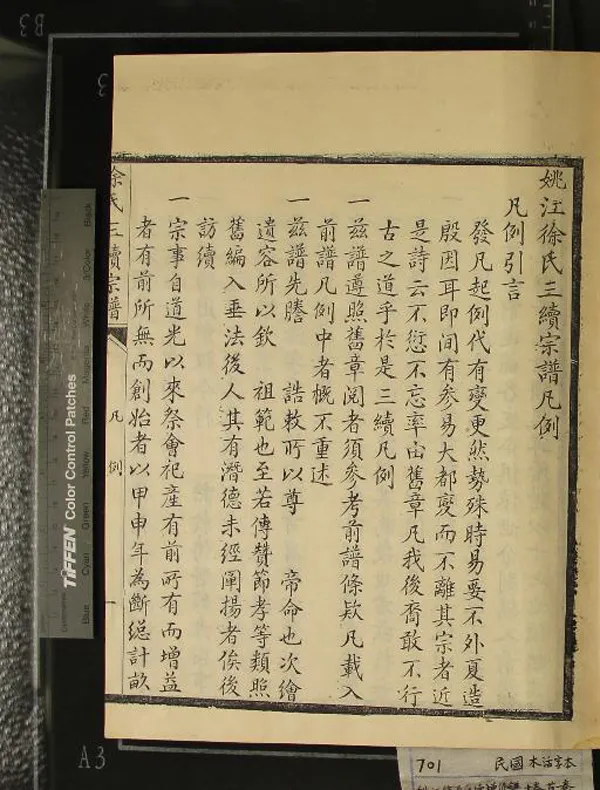 姚江徐氏三續宗譜凡例
凡例引言
發凡起例代有變更然勢殊時易要不外夏造
殷因耳即间有参易大都變而不離其宗者近
是詩云不愆不忘率由舊章凡我後裔敢不行
古之道乎於是三續凡例
一兹譜遵照舊章閱者須参考前譜條欵凡載入
前譜凡例中者概不重述
一兹譜先謄 誥敕所以尊 帝命也次繪
遺容所以欽 祖範也至若傳贊節孝等類照
舊編入垂法後人其有潛德未經闡揚者俟後
訪續
一宗事自道光以來祭會祀產有前所有而增益
者有前所無而創始者以甲申年為斷總計畝
徐氏三續宗譜
凡例
一
B3
3
A3
TIFFEN Color Control Patches
Blue
Cyan
Green
Yellow
Red
Magenta
Black
701 民國木活字本